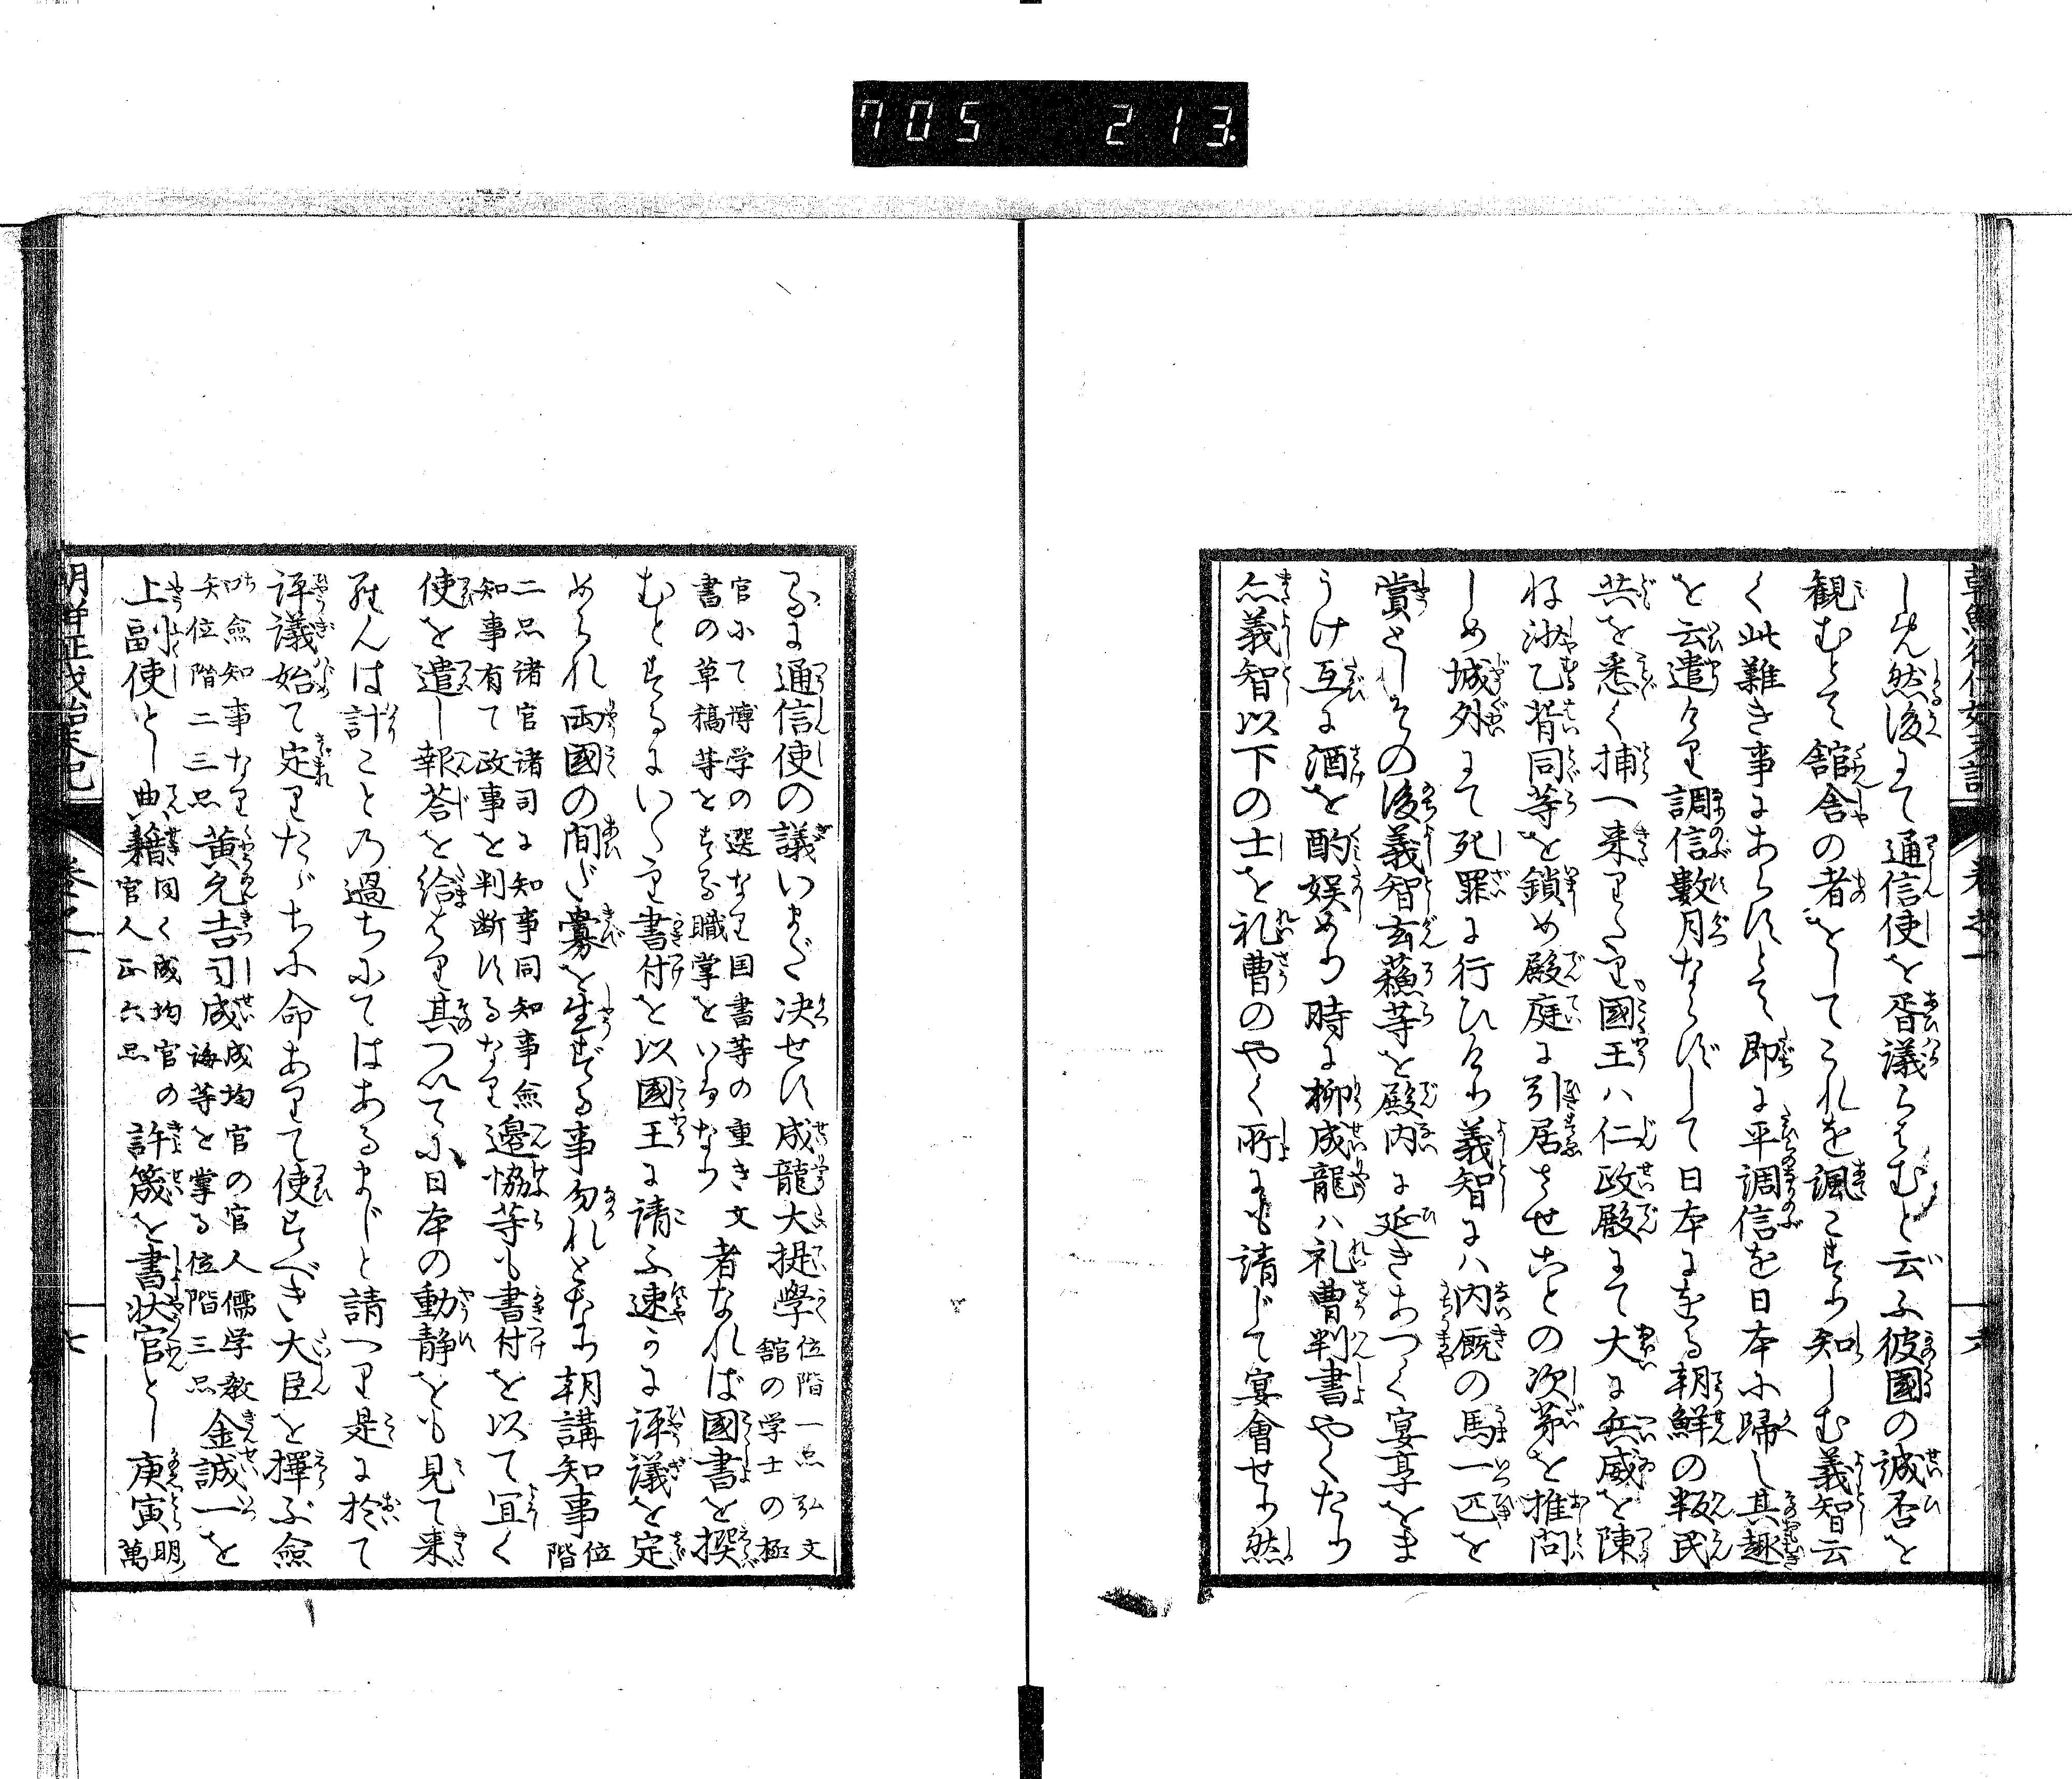 705 213
しめ然後にて通信使を胥議らはむと云ふ彼國の誠否を
観むとて舘舎の者をしてこれを諷こすり知しむ義智云
く此難き事にあらすとて即に平調信を日本に歸し其趣
を云遣けり調信數月ならずして日本に在る朝鮮の叛民
共を悉く捕へ来りたり國王ハ仁政殿にて大に兵威を陳
ね沙乙背同等を鎖め殿庭に引居させことの次第を推問
しめ城外にて死罪に行ひけり義智にハ内厩の馬一匹を
賞としその後義智玄蘓等を殿内に延きあつく宴享をま
うけ互に酒を酌娯めり時に柳成龍ハ礼曹判書やくたり
亦義智以下の士を礼曹のやく所にも請じて宴會せり然
卷之一
六
るに通信使の議いまだ决せす成龍大提學位階一品弘文舘の学士の極
官にて博学の選なり国書等の重き文書の草稿等をする職掌をいるなり者なれば國書を撰
むとするにいたり書付を以國王に請ふ速かに評議を定
められ両國の間だ釁を生ずる事勿れとなり朝講知事位階
二品诸官诸司に知事同知事僉知事有て政事を判断するなり邊恊等も書付を以て宜く
使を遣し報荅を給はり其ついでに日本の動静をも見て来
らんは計こと乃過ちにてはあるまじと請つり是に於て
評議始て定りたゞちに命ありて使すべき大臣を擇ぶ僉
知僉知事なり矢位階二三品黄允吉司成成均官の官人儒学教誨等を掌る位階三品金誠一を
上副使とし典籍同く成均官の官人正六品許筬を書状官とし庚寅明萬
卷之一
七